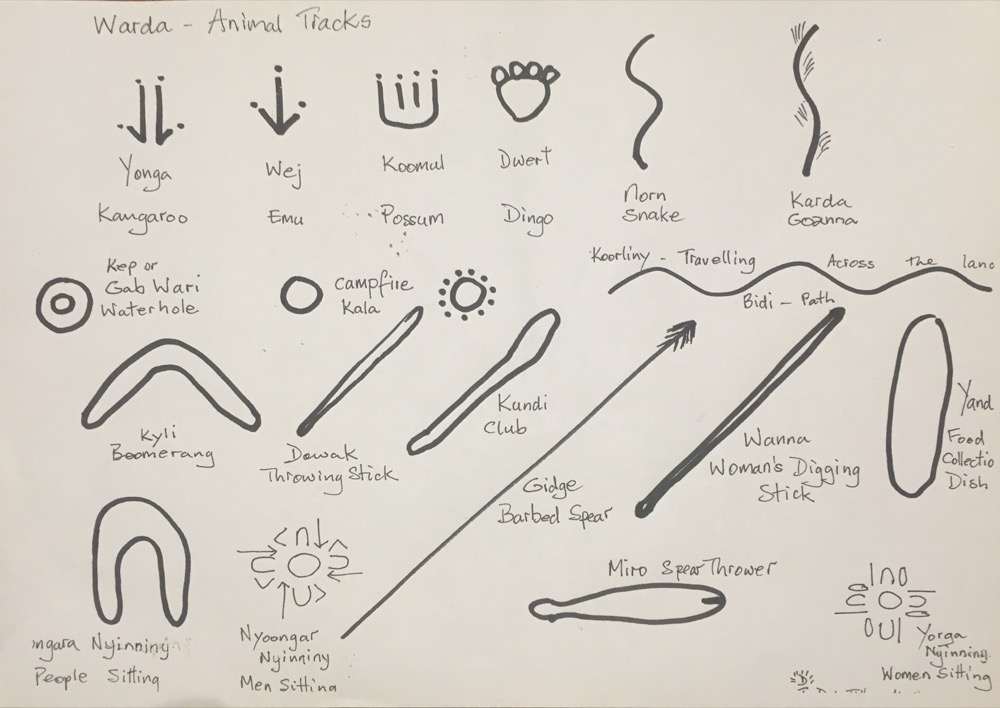 Warda - Animal Tracks
Yonga
Kangaroo
Wej
Emu
Koomul
Possum
Dwert
Dingo
Norn
Snake
Karda
Goanna
Kep or
Gab Wari
Waterhole
Campfire
Kala
Koorliny - Travelling Across the lanc
Bidi - Path
Kyli
Boomerang
Dowak
Throwing Stick
Kundi
Club
Gidge
Barbed Spear
Wanna
Woman's Digging
Stick
Yand
Food
Collectio
Dish
ngara Nyinning
People Sitting
Nyoongar
Nyinniny
Men Sitting
Miro Spear Thrower
Yorga
Nyinning
Women Sitting